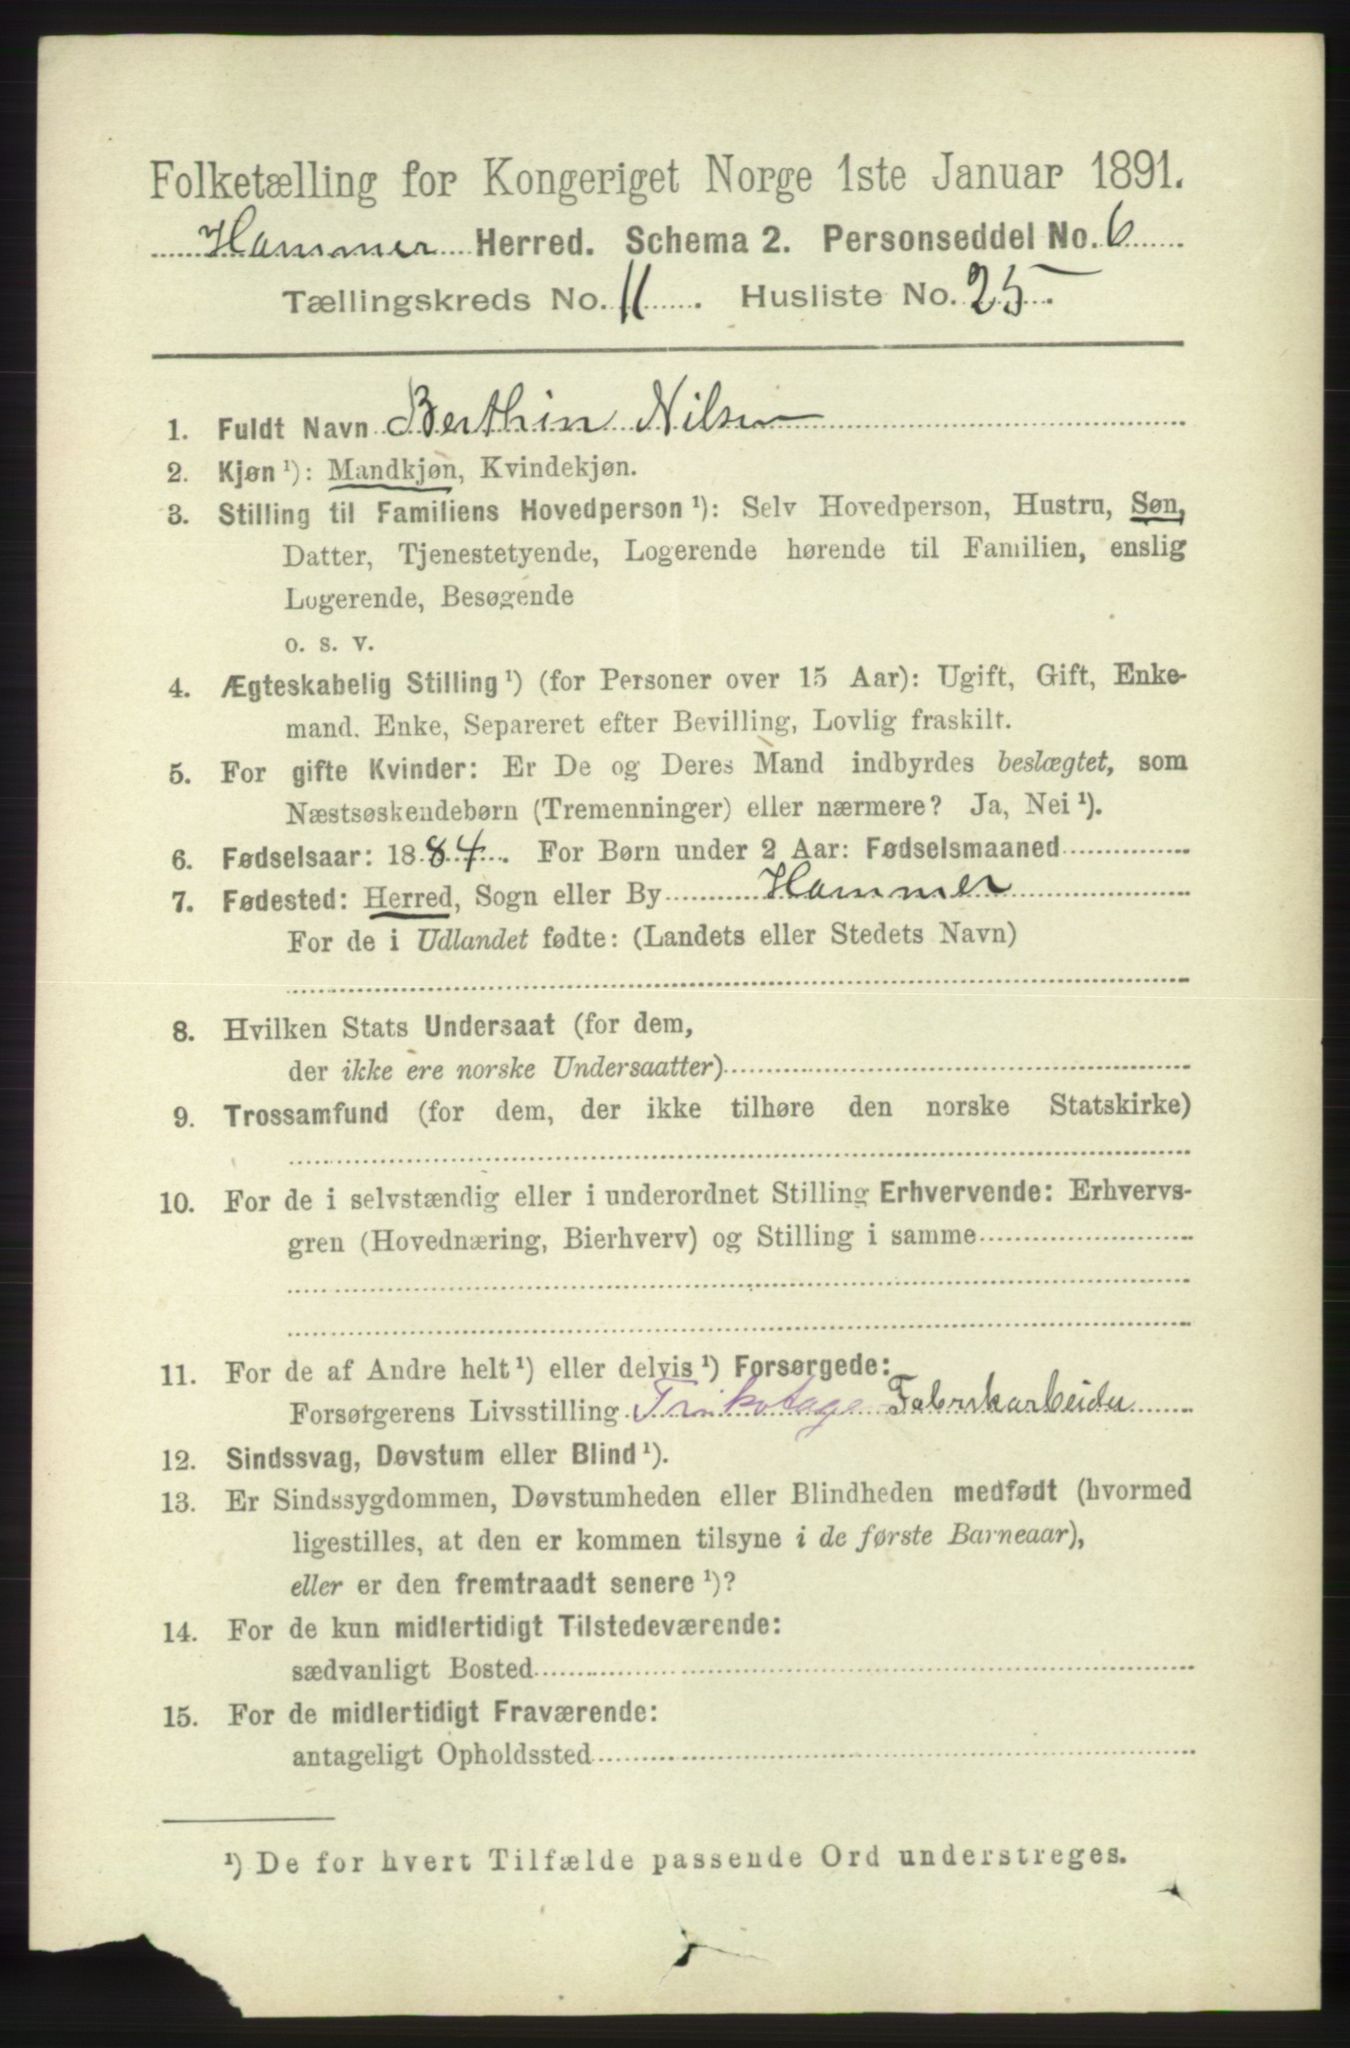 Folketælling for Kongeriget Norge 1ste Januar 1891.
Hammer Herred. Schema 2. Personseddel No. 6
Tællingskreds No. 11. Husliste No. 25.
1. Fuldt Navn Berthin Nilsen
2. Kjøn ¹): Mandkjøn, Kvindekjøn.
3. Stilling til Familiens Hovedperson ¹): Selv Hovedperson, Hustru, Søn,
Datter, Tjenestetyende, Logerende hørende til Familien, enslig
Logerende, Besøgende
o. s. v.
4. Ægteskabelig Stilling ¹) (for Personer over 15 Aar): Ugift, Gift, Enke-
mand. Enke, Separeret efter Bevilling, Lovlig fraskilt.
5. For gifte Kvinder: Er De og Deres Mand indbyrdes beslægtet, som
Næstsøskendebørn (Tremenninger) eller nærmere? Ja, Nei ¹).
6. Fødselsaar: 1884. For Børn under 2 Aar: Fødselsmaaned
7. Fødested: Herred, Sogn eller By Hammer
For de i Udlandet fødte: (Landets eller Stedets Navn)
8. Hvilken Stats Undersaat (for dem,
der ikke ere norske Undersaatter)
9. Trossamfund (for dem, der ikke tilhøre den norske Statskirke)
10. For de i selvstændig eller i underordnet Stilling Erhvervende: Erhvervs-
gren (Hovednæring, Bierhverv) og Stilling i samme
11. For de af Andre helt ¹) eller delvis ¹) Forsørgede:
Forsørgerens Livsstilling Trikotage Fabrikarbeider
12. Sindssvag, Døvstum eller Blind ¹).
13. Er Sindssygdommen, Døvstumheden eller Blindheden medfødt (hvormed
ligestilles, at den er kommen tilsyne i de første Barneaar),
eller er den fremtraadt senere ¹)?
14. For de kun midlertidigt Tilstedeværende:
sædvanligt Bosted
15. For de midlertidigt Fraværende:
antageligt Opholdssted
¹) De for hvert Tilfælde passende Ord understreges.